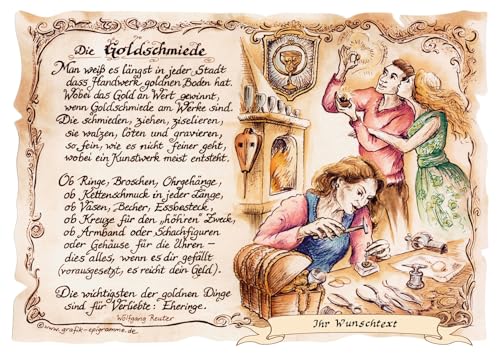 Die Goldschmiede
Man weiß es längst in jeder Stadt
dass Handwerk goldnen Boden hat.
Wobei das Gold an Wert gewinnt,
wenn Goldschmiede am Werke sind.
Die schmieden, ziehen, ziselieren,
sie walzen, löten und gravieren,
so fein, wie es nicht feiner geht,
wobei ein Kunstwerk meist entsteht.
Ob Ringe, Broschen, Ohrgehänge,
ob Kettenschmuck in jeder Länge,
ob Vasen, Becher, Essbesteck,
ob Kreuze für den „höhren" Zweck,
ob Armband oder Schachfiguren
oder Gehäuse für die Uhren –
dies alles, wenn es dir gefällt
(vorausgesetzt, es reicht dein Geld).
Die wichtigsten der goldnen Dinge
sind für Verliebte: Eheringe.
Wolfgang Reuter
©www.grafik-epigramme.de
Ihr Wunschtext